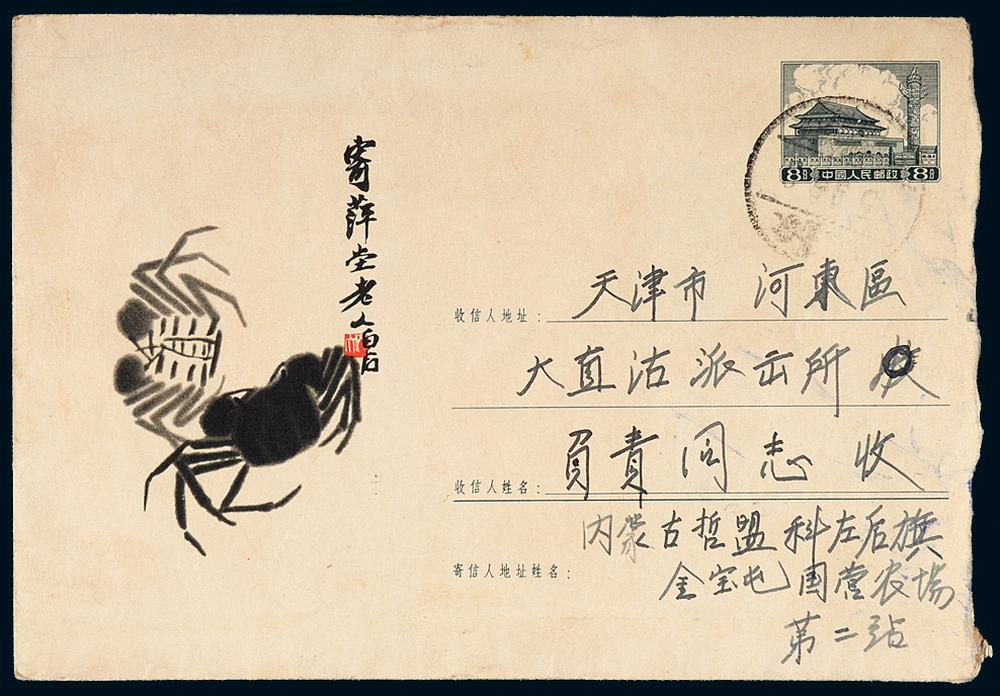 8分 中國人民邮政 8分
寄萍堂老人白石
收信人地址： 天津市 河東區
大直沽派出所
收信人姓名： 負責同志 收
内蒙古哲盟科左后旗
寄信人地址姓名： 金宝屯国营农場
第二站